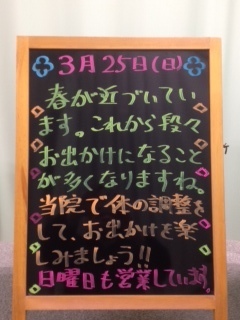 3月25日(日)
春が近づいてい
ます。これから段々
お出かけになること
が多くなりますね。
当院で体の調整を
して、お出かけを楽
しみましょう!!
日曜日も営業しています。